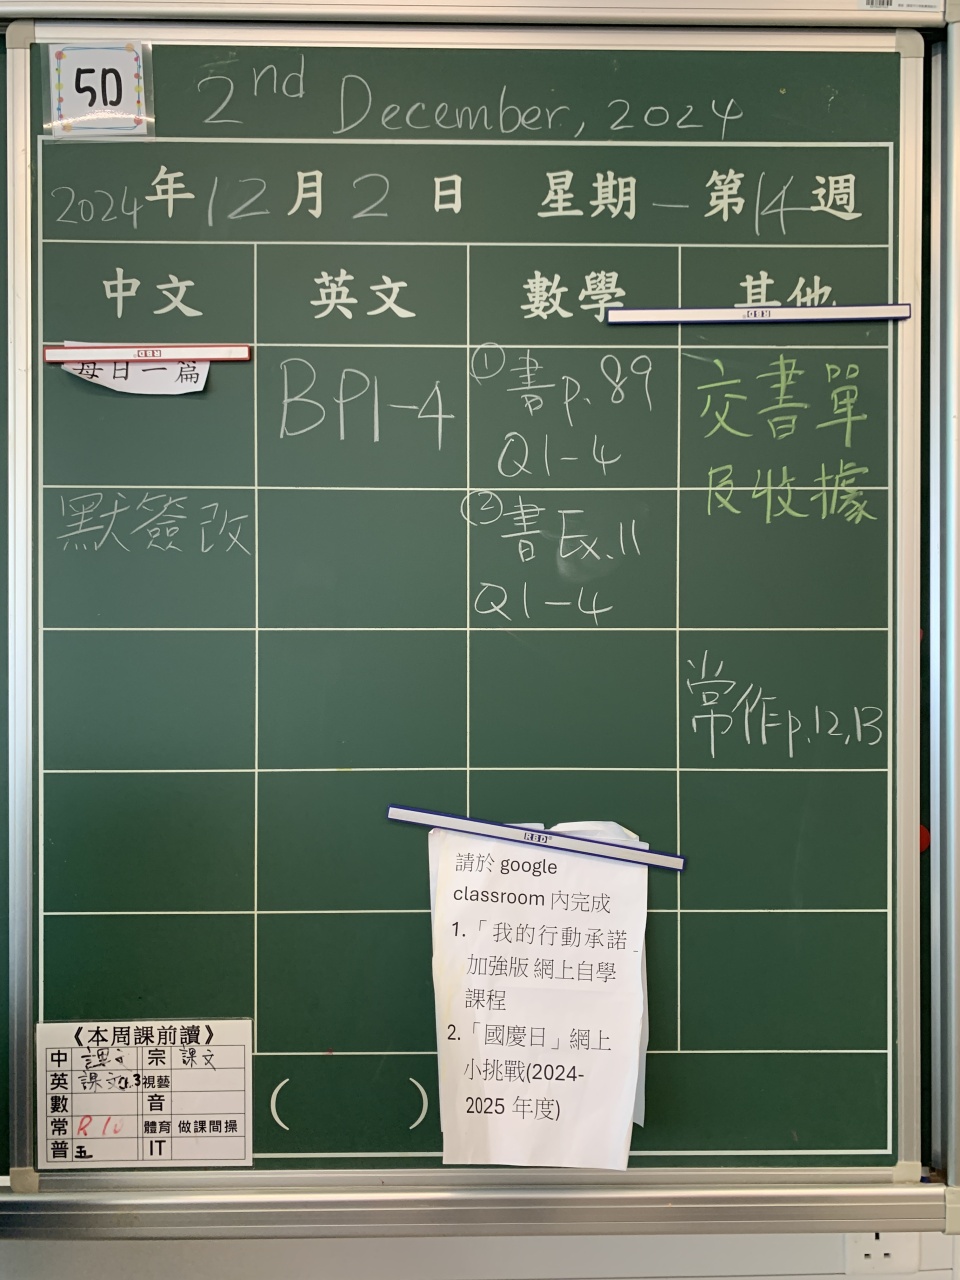 5D
2nd December, 2024
2024年12月2日 星期一 第14週
中文 英文 數學 其他
每日一篇
BP1-4
①書p.89
Q1-4
交書單
及收據
默簽改
②書Ex.11
Q1-4
常作p.12,13
RBD
RBD
RBD
請於 google
classroom 內完成
1.「我的行動承諾
加強版 網上自學
課程
2.「國慶日」網上
小挑戰(2024-
2025 年度)
《本周課前讀》
中 課文 宗 課文
英 課文 視藝
數 音
常 R 10 體育 做課間操
普 五 IT
( )